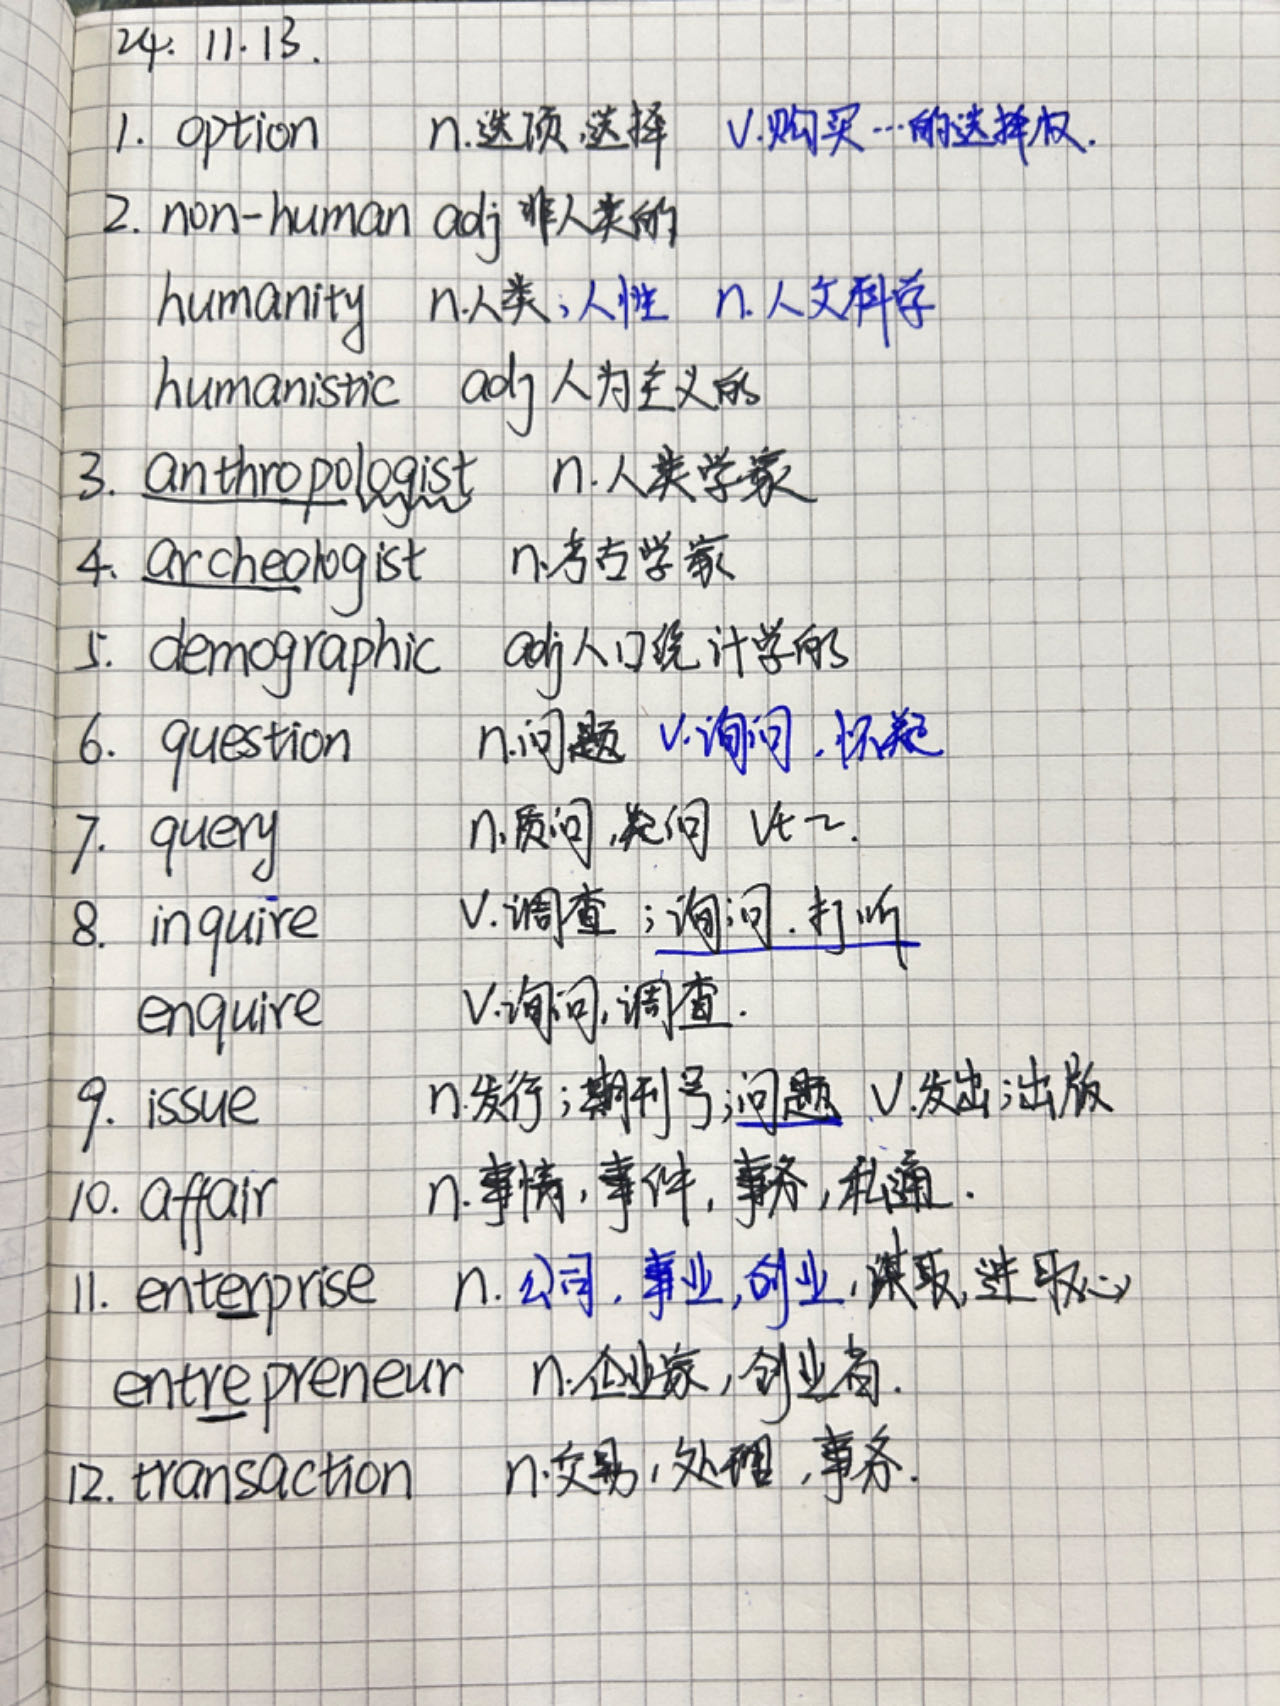 24. 11.13.
1. option n.选项,选择 v.购买…的选择权.
2. non-human adj 非人类的
humanity n.人类;人性 n.人文科学
humanistic adj 人为主义的
3. anthropologist n.人类学家
4. archeologist n.考古学家
5. demographic adj人口统计学的
6. question n.问题 v.询问,怀疑
7. query n.质问,疑问 vt~.
8. inquire v.调查;询问.打听
enquire v.询问,调查.
9. issue n.发行;期刊号;问题 v.发出;出版
10. affair n.事情,事件,事务,私通.
11. enterprise n.公司,事业,创业,谋取,进取心
entrepreneur n.企业家,创业者.
12. transaction n.交易,处理,事务.